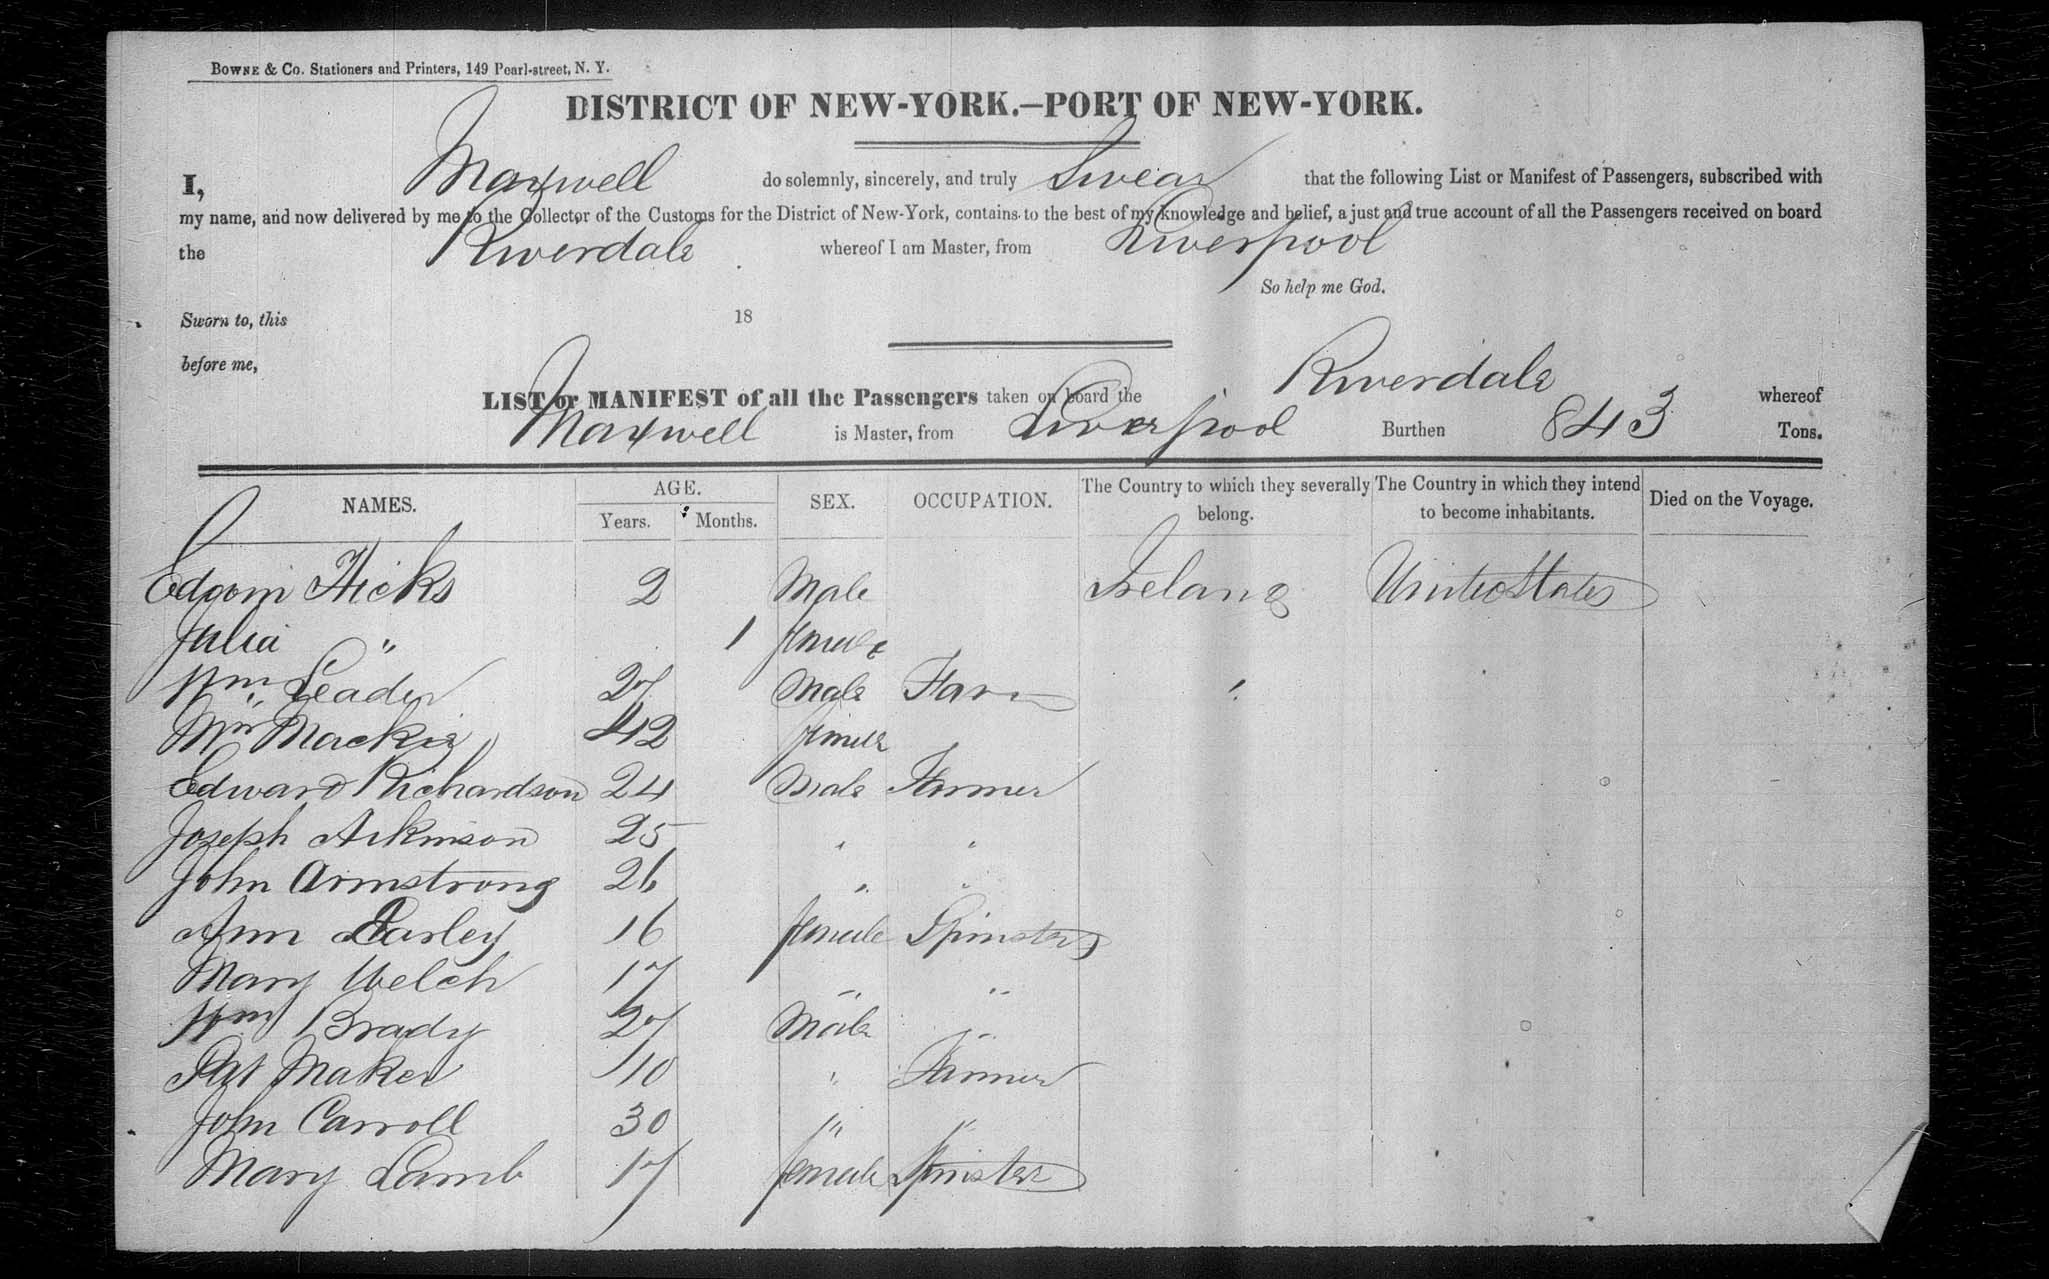 BOWNE & CO. Stationers and Printers, 149 Pearl-street, N. Y.
DISTRICT OF NEW-YORK.—PORT OF NEW-YORK.
I, Maxwell do solemnly, sincerely, and truly Swear that the following List or Manifest of Passengers, subscribed with
my name, and now delivered by me to the Collector of the Customs for the District of New-York, contains to the best of my knowledge and belief, a just and true account of all the Passengers received on board
the Riverdale whereof I am Master, from Liverpool
So help me God.
Sworn to, this 18
before me,
LIST or MANIFEST of all the Passengers taken on board the Riverdale whereof
Maxwell is Master, from Liverpool Burthen 843 Tons.
NAMES. AGE. SEX. OCCUPATION. The Country to which they severally belong. The Country in which they intend to become inhabitants. Died on the Voyage.
Years. Months.
Edwin Hicks 2 Male Ireland United States
Julia " 1 female
Wm Leader 27 Male Farm "
Mackie 42 female
Edward Richardson 24 Male Farmer
Joseph Atkinson 25 " "
John Armstrong 26 " "
Ann Darley 16 female Spinsters
Mary Welch 17 " "
Wm Brady 27 Male "
Pat Maker 10 " Farmer
John Carroll 30 " "
Mary Lamb 17 female Spinster